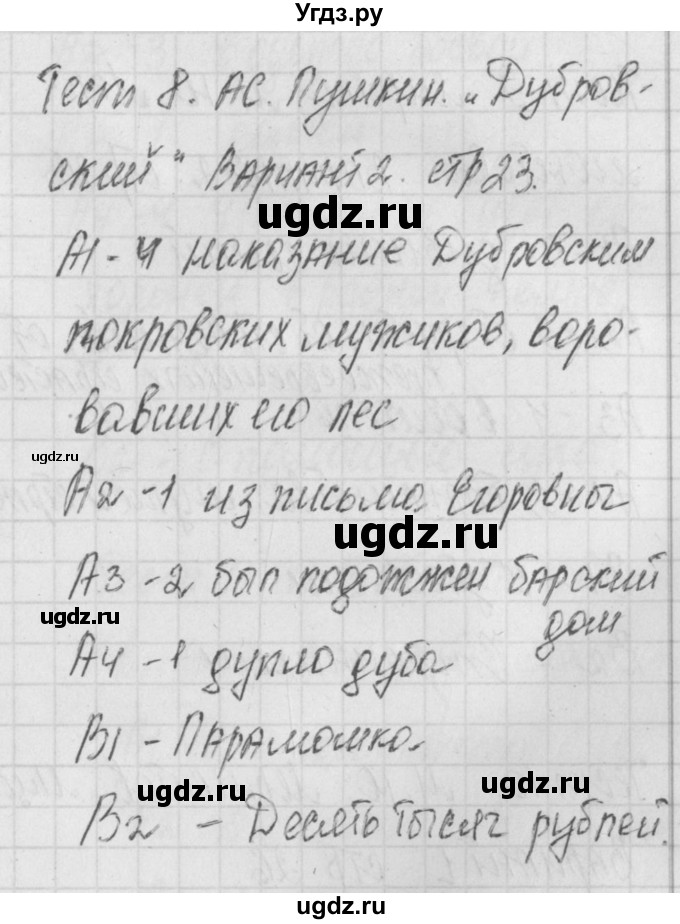 Угдз.ру
Тест 8. АС. Пушкин. „Дубров-
ский" Вариант 2. стр 23.
ugdz.ru
А1-4 наказание Дубровским
покровских мужиков, воро-
вавших его лес
ugdz.ru
А2-1 из письма Егоровны
ugdz.ru
А3-2 был подожжен барский
дом
ugdz.ru
А4-1 дупло дуба
В1 - Парамошка
ugdz.ru
ugdz.ru
В2 - Десять тысяч рублей.
ugdz.ru